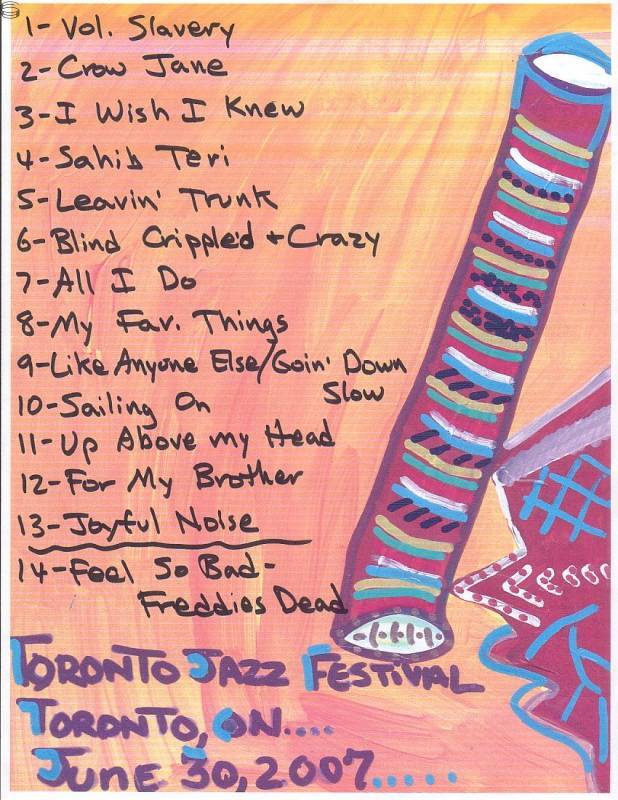 1-Vol. Slavery
2-Crow Jane
3-I Wish I Knew
4-Sahib Teri
5-Leavin' Trunk
6-Blind Cripple'd + Crazy
7-All I Do
8-My Fav. Things
9-Like Anyone Else/Goin' Down
Slow
10-Sailing On
11-Up Above my Head
12-For My Brother
13-Joyful Noise
14-Feel So Bad-
Freddies Dead
TORONTO JAZZ FESTIVAL
TORONTO, ON....
JUNE 30, 2007.....